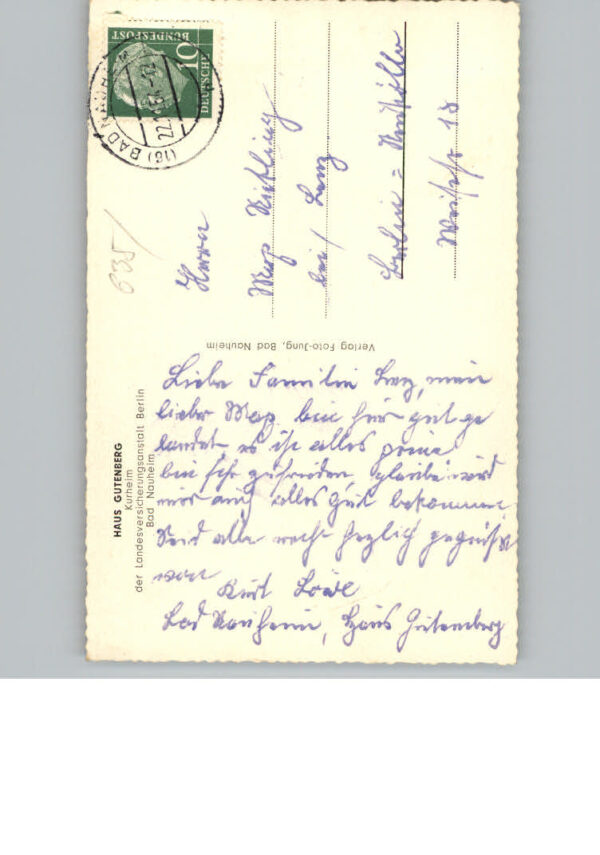 HAUS GUTENBERG
Kurheim
der Landesversicherungsanstalt Berlin
Bad Nauheim
Verlag Foto-Jung, Bad Nauheim
DEUTSCHE
BUNDESPOST
10
(16) BAD NAUHEIM
635/
Herrn
Max
bei Lenz
Berlin = Neukölln
Weisestr 18
Liebe Familie Lenz, mein
lieber Max bin hier gut ge
landet es ist alles prima
bin sehr zufrieden, glaube wird
mir auch alles gut bekommen
Seid alle recht herzlich gegrüßt
von
Kurt
Bad Nauheim, Haus Gutenberg